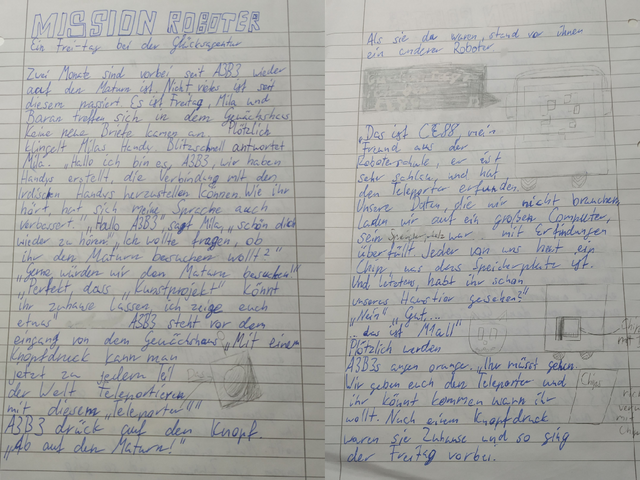 MISSION ROBOTER
Ein Frei-tag bei der Glücksagentur
Zwei Monate sind vorbei seit A3B3 wieder
auf den Maturn ist. Nicht vieles ist seit
diesem passiert. Es ist freitag, Mila und
Baran treffen sich in dem Gewächshaus
Keine neue Briefe kamen an. Plötzlich
klingelt Milas Handy. Blitzschnell antwortet
Mila. „Hallo ich bin es, A3B3, wir haben
Handys erstellt, die Verbindung mit den
irdischen Handys herzustellen können. Wie ihr
hört, hat sich meine Sprache auch
verbessert." „Hallo A3B3", sagt Mila, „schön dich
wieder zu hören!" „Ich wollte fragen, ob
ihr den Maturn besuchen wollt?"
„Gerne würden wir den Maturn besuchen!"
„Perfekt, dass „Kunstprojekt" könnt
ihr zuhause lassen, ich zeige euch
etwas A3B3 steht vor dem
eingang von dem gewächshaus „Mit einem
Knopfdruck kann man
jetzt zu jedem Teil
der Welt Teleportieren
mit diesem „Teleporter"!"
A3B3 drück auf den Knopf.
„Ab auf den Maturn!"
Als sie da waren, stand vor ihnen
ein anderer Roboter
„Das ist CE88, mein
Freund aus der
Roboterschule, er ist
sehr schlau, und hat
den Teleporter erfunden.
Unsere Daten, die wir nicht brauchen,
laden wir auf ein großen Computer,
sein Speicherplatz war mit Erfindungen
überfüllt. Jeder von uns hat ein
Chip, was dass Speicherplatz ist.
Und letztens, habt ihr schon
unseres Haustier gesehen?"
„Nein" „Gut...
...das ist M1all"
Plötzlich werden
A3B3s augen orange. „Ihr müsst gehen.
Wir geben euch den Teleporter und
ihr könnt kommen wann ihr
wollt. Nach einem Knopfdruck
waren sie Zuhause und so ging
der freitag vorbei.
Chip